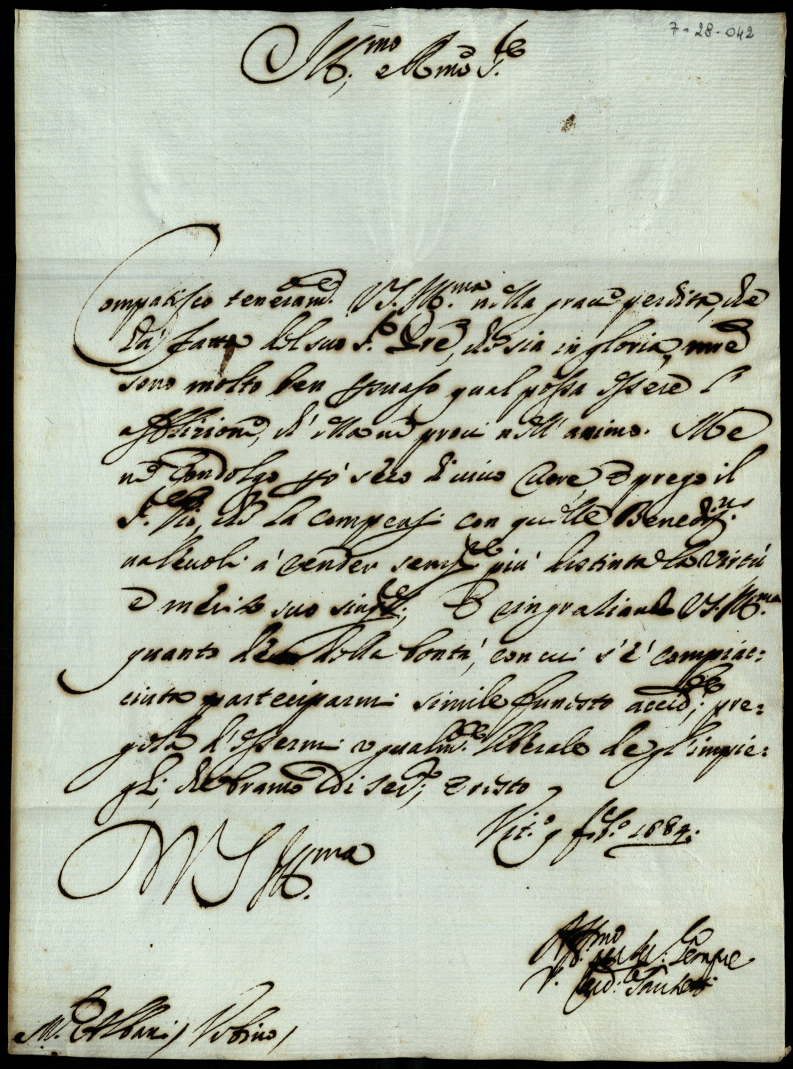 7-28-042
Ill.mo e R.mo S.re
Compatisco teneram.te VS. Ill.ma nella grave perdita, che
hà fatta del suo S.r Pre, che sia in gloria, mentre
sono molto ben persuaso qual possa essere l'
afflizione, ch'ella ne provi nell'animo. Me
ne condolgo perciò seco di vivo cuore, e prego il
S.r Dio, che la compensi con quelle Benediz.ni
valevoli à render sempre più distinta la virtù
e merito suo singolare; E ringratiando VS. Ill.ma
quanto devo della bontà, con cui s'è compiac:
ciuta parteciparmi simile funesto accid.te; pre:
gola d'essermi ugualm.te liberale de gl'impie:
ghi, che bramo di ser.la; e resto
Vit.o 9 1684.
VS Ill.ma
Aff.mo per ser.la sempre
M.r Albani, Urbino